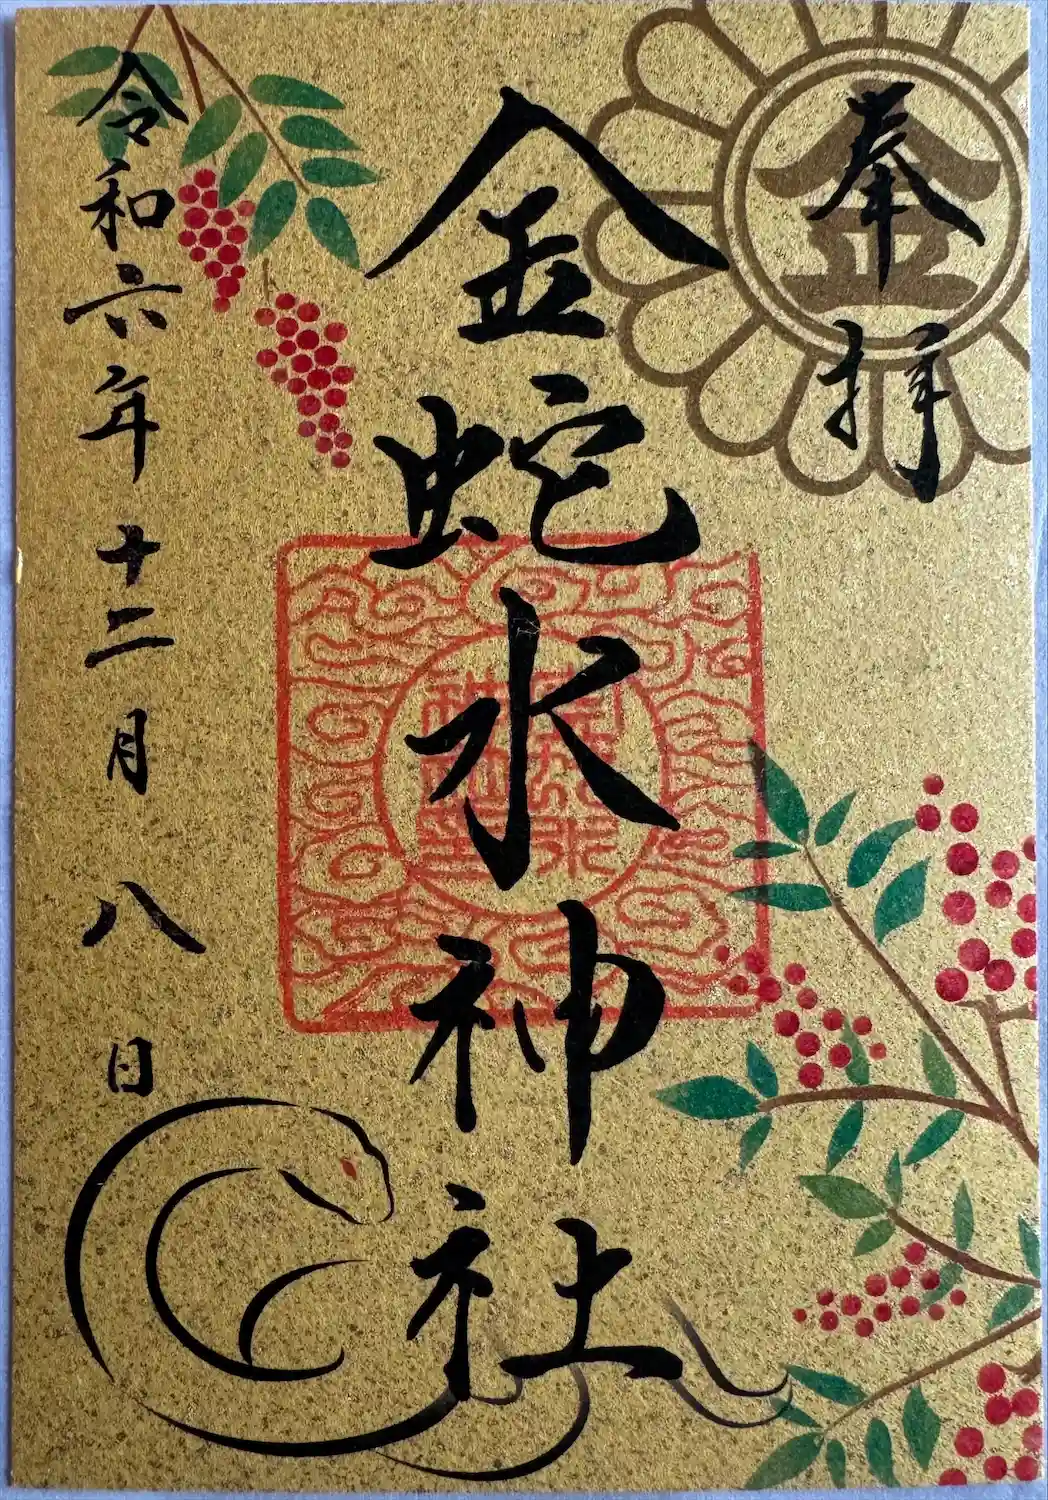 奉拝
金
金蛇水神社
令和六年十二月八日